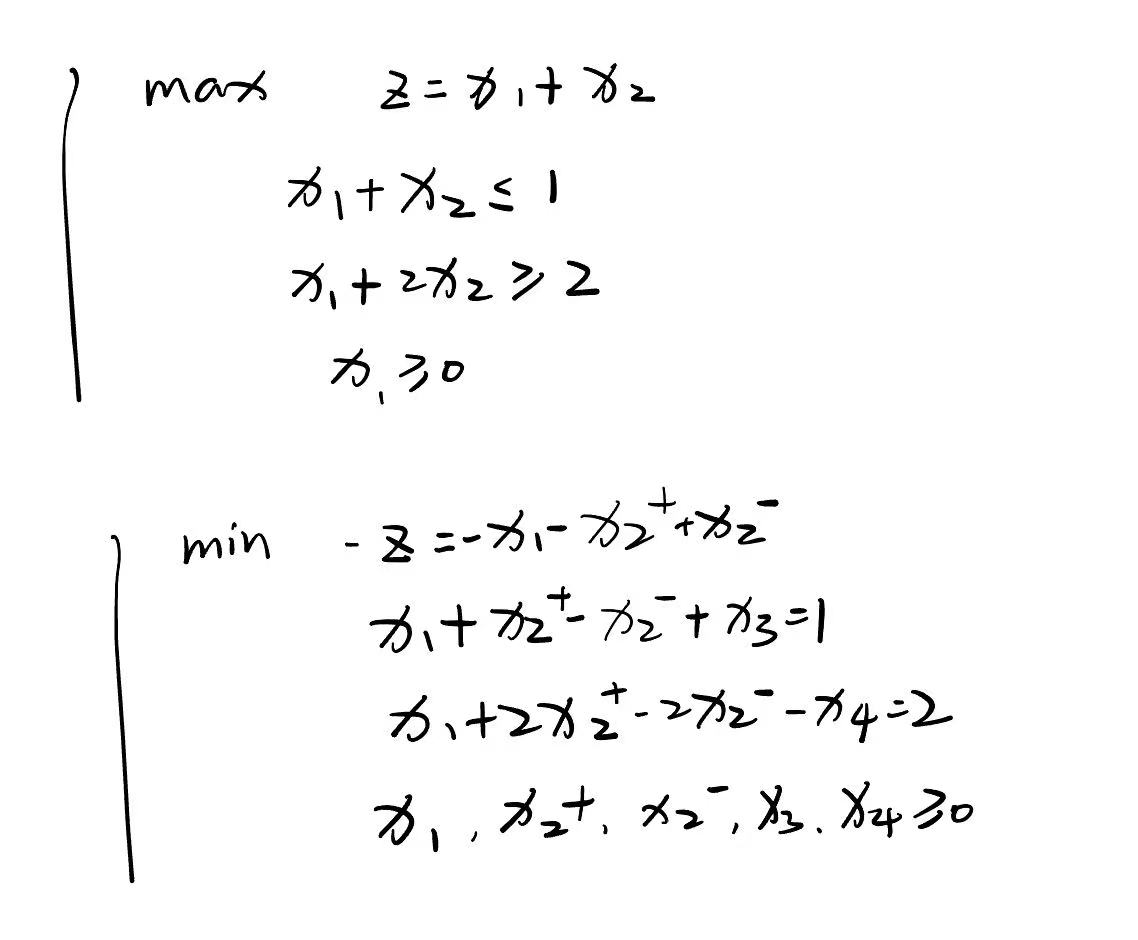 max z = x₁ + x₂
x₁ + x₂ ≤ 1
x₁ + 2x₂ ≥ 2
x₁ ≥ 0
min - z = -x₁ - x₂⁺ + x₂⁻
x₁ + x₂⁺ - x₂⁻ + x₃ = 1
x₁ + 2x₂⁺ - 2x₂⁻ - x₄ = 2
x₁, x₂⁺, x₂⁻, x₃, x₄ ≥ 0